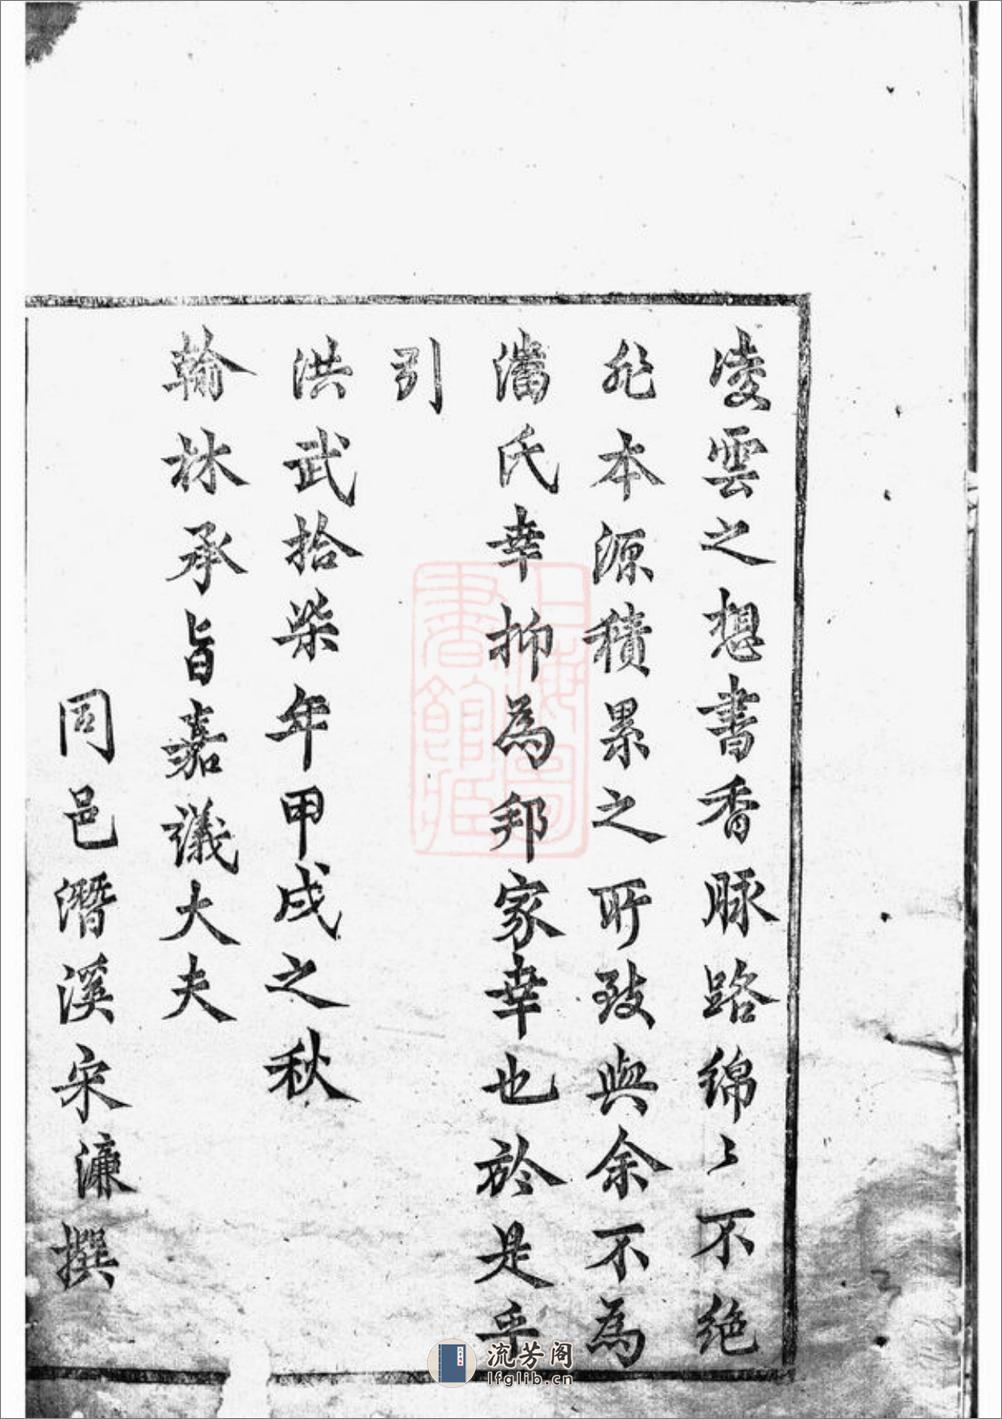 凌雲之想書香脉路綿〻不絶
非本源積累之所致與余不為
潘氏幸抑為邦家幸也於是乎
引
洪武拾柒年甲戌之秋
翰林承旨嘉議大夫
同邑潛溪宋濂撰
上海圖
書館藏
流芳阁
lfglib.cn